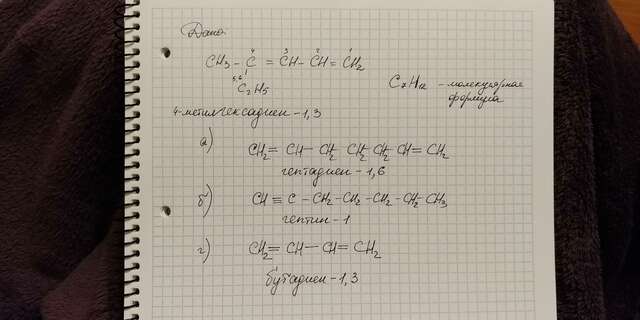 Дано:
4 3 2 1
CH3 - C = CH - CH = CH2
5,6 |
C2H5
C7H12 - молекулярная
формула
4-метилгексадиен-1,3
а)
CH2 = CH - CH2 CH2 CH2 CH = CH2
гептадиен - 1,6
б)
CH ≡ C - CH2 - CH2 - CH2 - CH2 - CH3
гептин - 1
г)
CH2 = CH - CH = CH2
бутадиен - 1,3